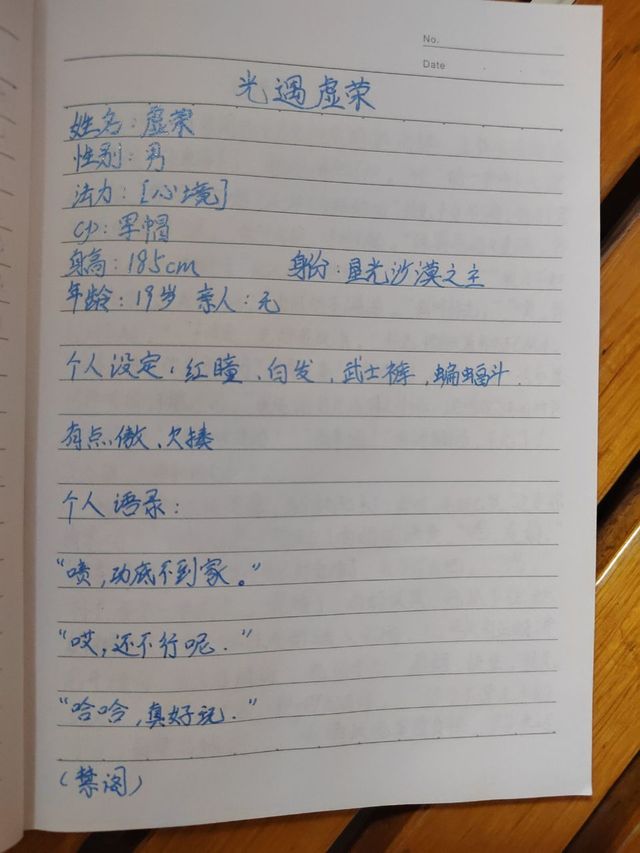 No.
Date
光遇虚荣
姓名：虚荣
性别：男
法力：[心境]
cp：墨帽
身高：185cm 身份：星光沙漠之主
年龄：19岁 亲人：无
个人设定：红瞳、白发，武士裤，蝙蝠斗.
有点傲、欠揍
个人语录：
“啧，功底不到家。”
“哎，还不行呢.”
“哈哈，真好玩.”
（禁阅）